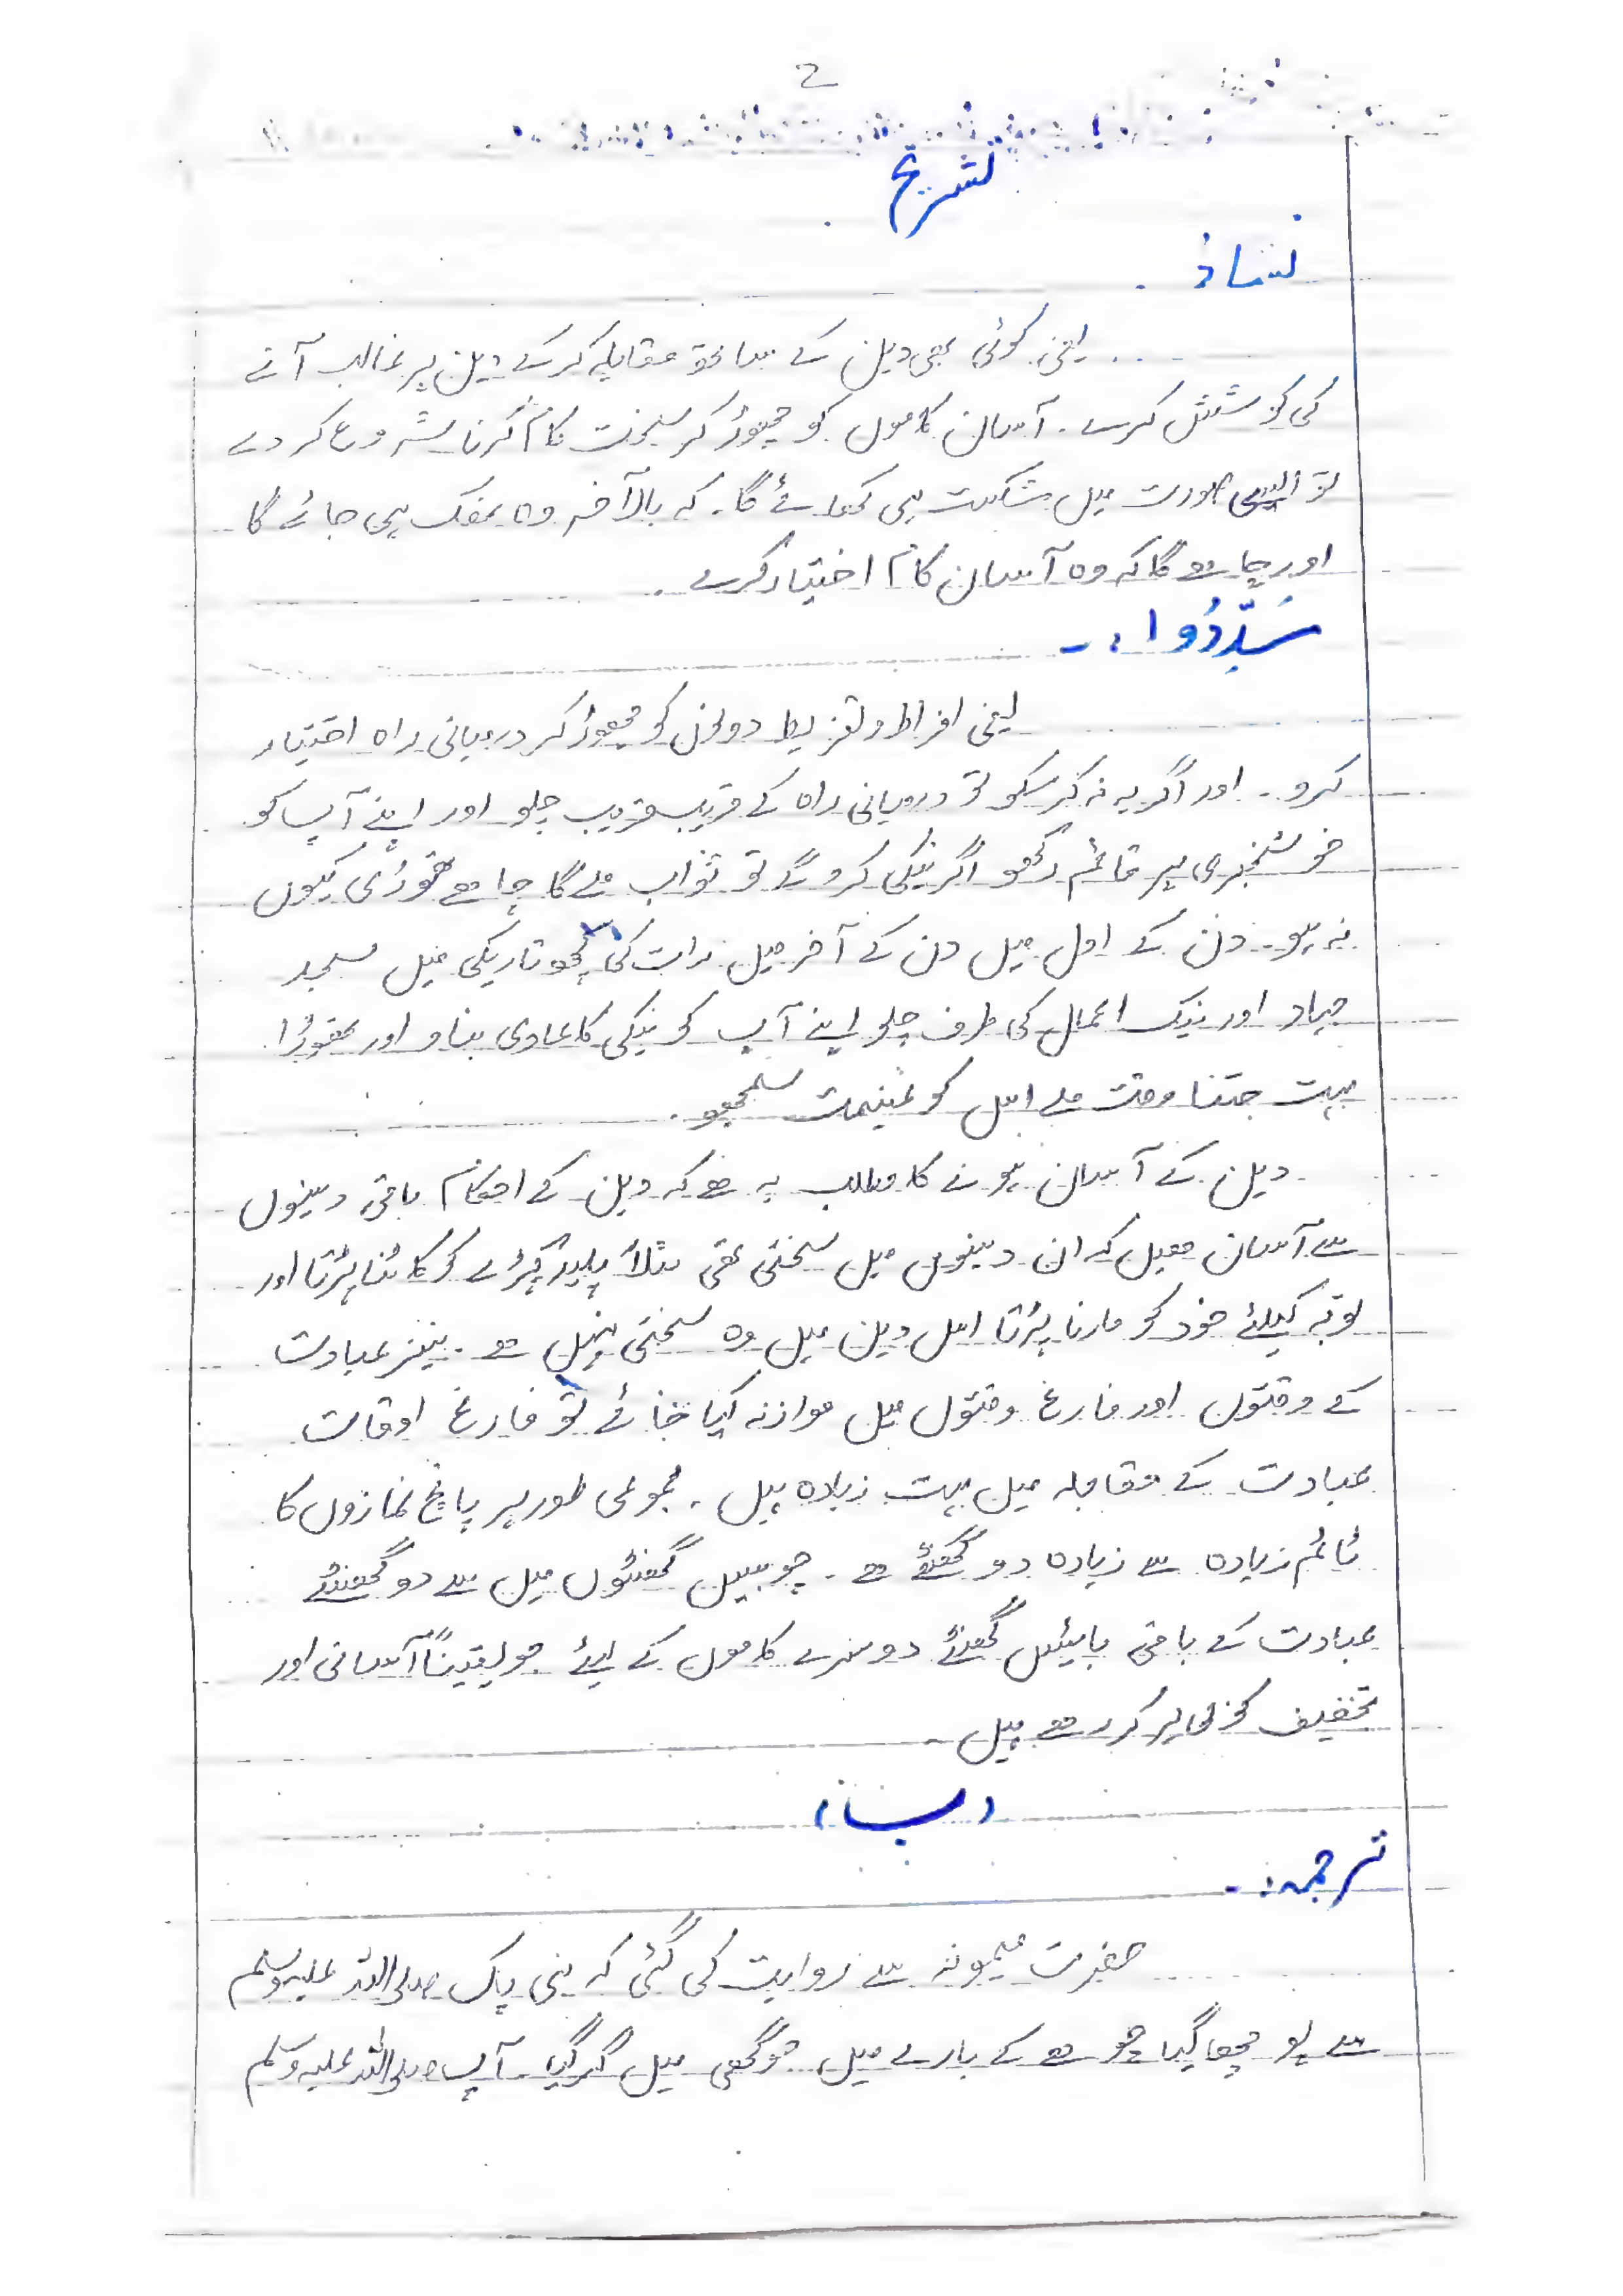 2
تشریح
یعنی کوئی بھی دین کے ساتھ مقابلہ کرکے دین پر غالب آنے
کی کوشش کرے۔ آسان کاموں کو چھوڑ کر سخت کام کرنا شروع کردے
تو ایسی صورت میں شکست ہی کھائے گا۔ کہ بالآخر وہ تھک ہی جائے گا
اور چاہے گا کہ وہ آسان کام اختیار کرے۔
سَدِّدُوا :-
یعنی افراط و تفریط دونوں کو چھوڑ کر درمیانی راہ اختیار
کرو۔ اور اگر یہ نہ کرسکو تو درمیانی راہ کے قریب قریب چلو اور اپنے آپ کو
خوشخبری پر قائم رکھو اگر نیکی کروگے تو ثواب ملے گا چاہے تھوڑی کیوں
نہ ہو۔ دن کے اول میں دن کے آخر میں رات کی کچھ تاریکی میں مسجد
جہاد اور نیک اعمال کی طرف چلو اپنے آپ کو نیکی کا عادی بناو اور تھوڑا
بہت جتنا وقت ملے اس کو غنیمت سمجھو۔
دین کے آسان ہونے کا مطلب یہ ہے کہ دین کے احکام باقی دینوں
سے آسان ھیں کہ ان دینوں میں سختی تھی مثلاً پلید کپڑے کو کاٹنا پڑتا اور
توبہ کیلئے خود کو مارنا پڑتا اس دین میں وہ سختی نہیں ہے۔ نیز عبادت
کے وقتوں اور فارغ وقتوں میں موازنہ کیا جائے تو فارغ اوقات
عبادت کے مقابلہ میں بہت زیادہ ہیں۔ مجموعی طور پر پانچ نمازوں کا
ٹائم زیادہ سے زیادہ دو گھنٹے ہے۔ چوبیس گھنٹوں میں سے دو گھنٹے
عبادت کے باقی بائیس گھنٹے دوسرے کاموں کے لیئے جو یقیناً آسانی اور
تخفیف کو ظاہر کررہے ہیں
(ب)
ترجمہ:-
حضرت میمونہ سے روایت کی گئی کہ نبی پاک صلی اللہ علیہ وسلم
سے پوچھا گیا چوہے کے بارے میں جو گھی میں گر گیا۔ آپ صلی اللہ علیہ وسلم